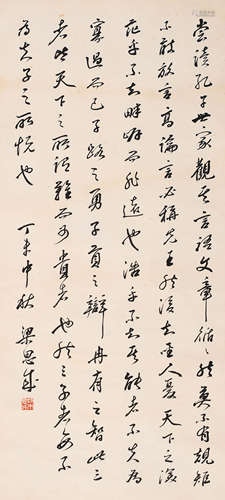 嘗讀孔子世家觀其言語文章循〻然莫不有規矩
不敢放言高論言必稱先王然後知聖人憂天下之深
茫乎不知畔岸而非遠也浩乎不知其能者不失為
寡過而已子路之勇子貢之辯冉有之智此三
者皆天下之所謂難而可貴者也然三子者每不
為夫子之所悅也 丁未中秋 梁思成